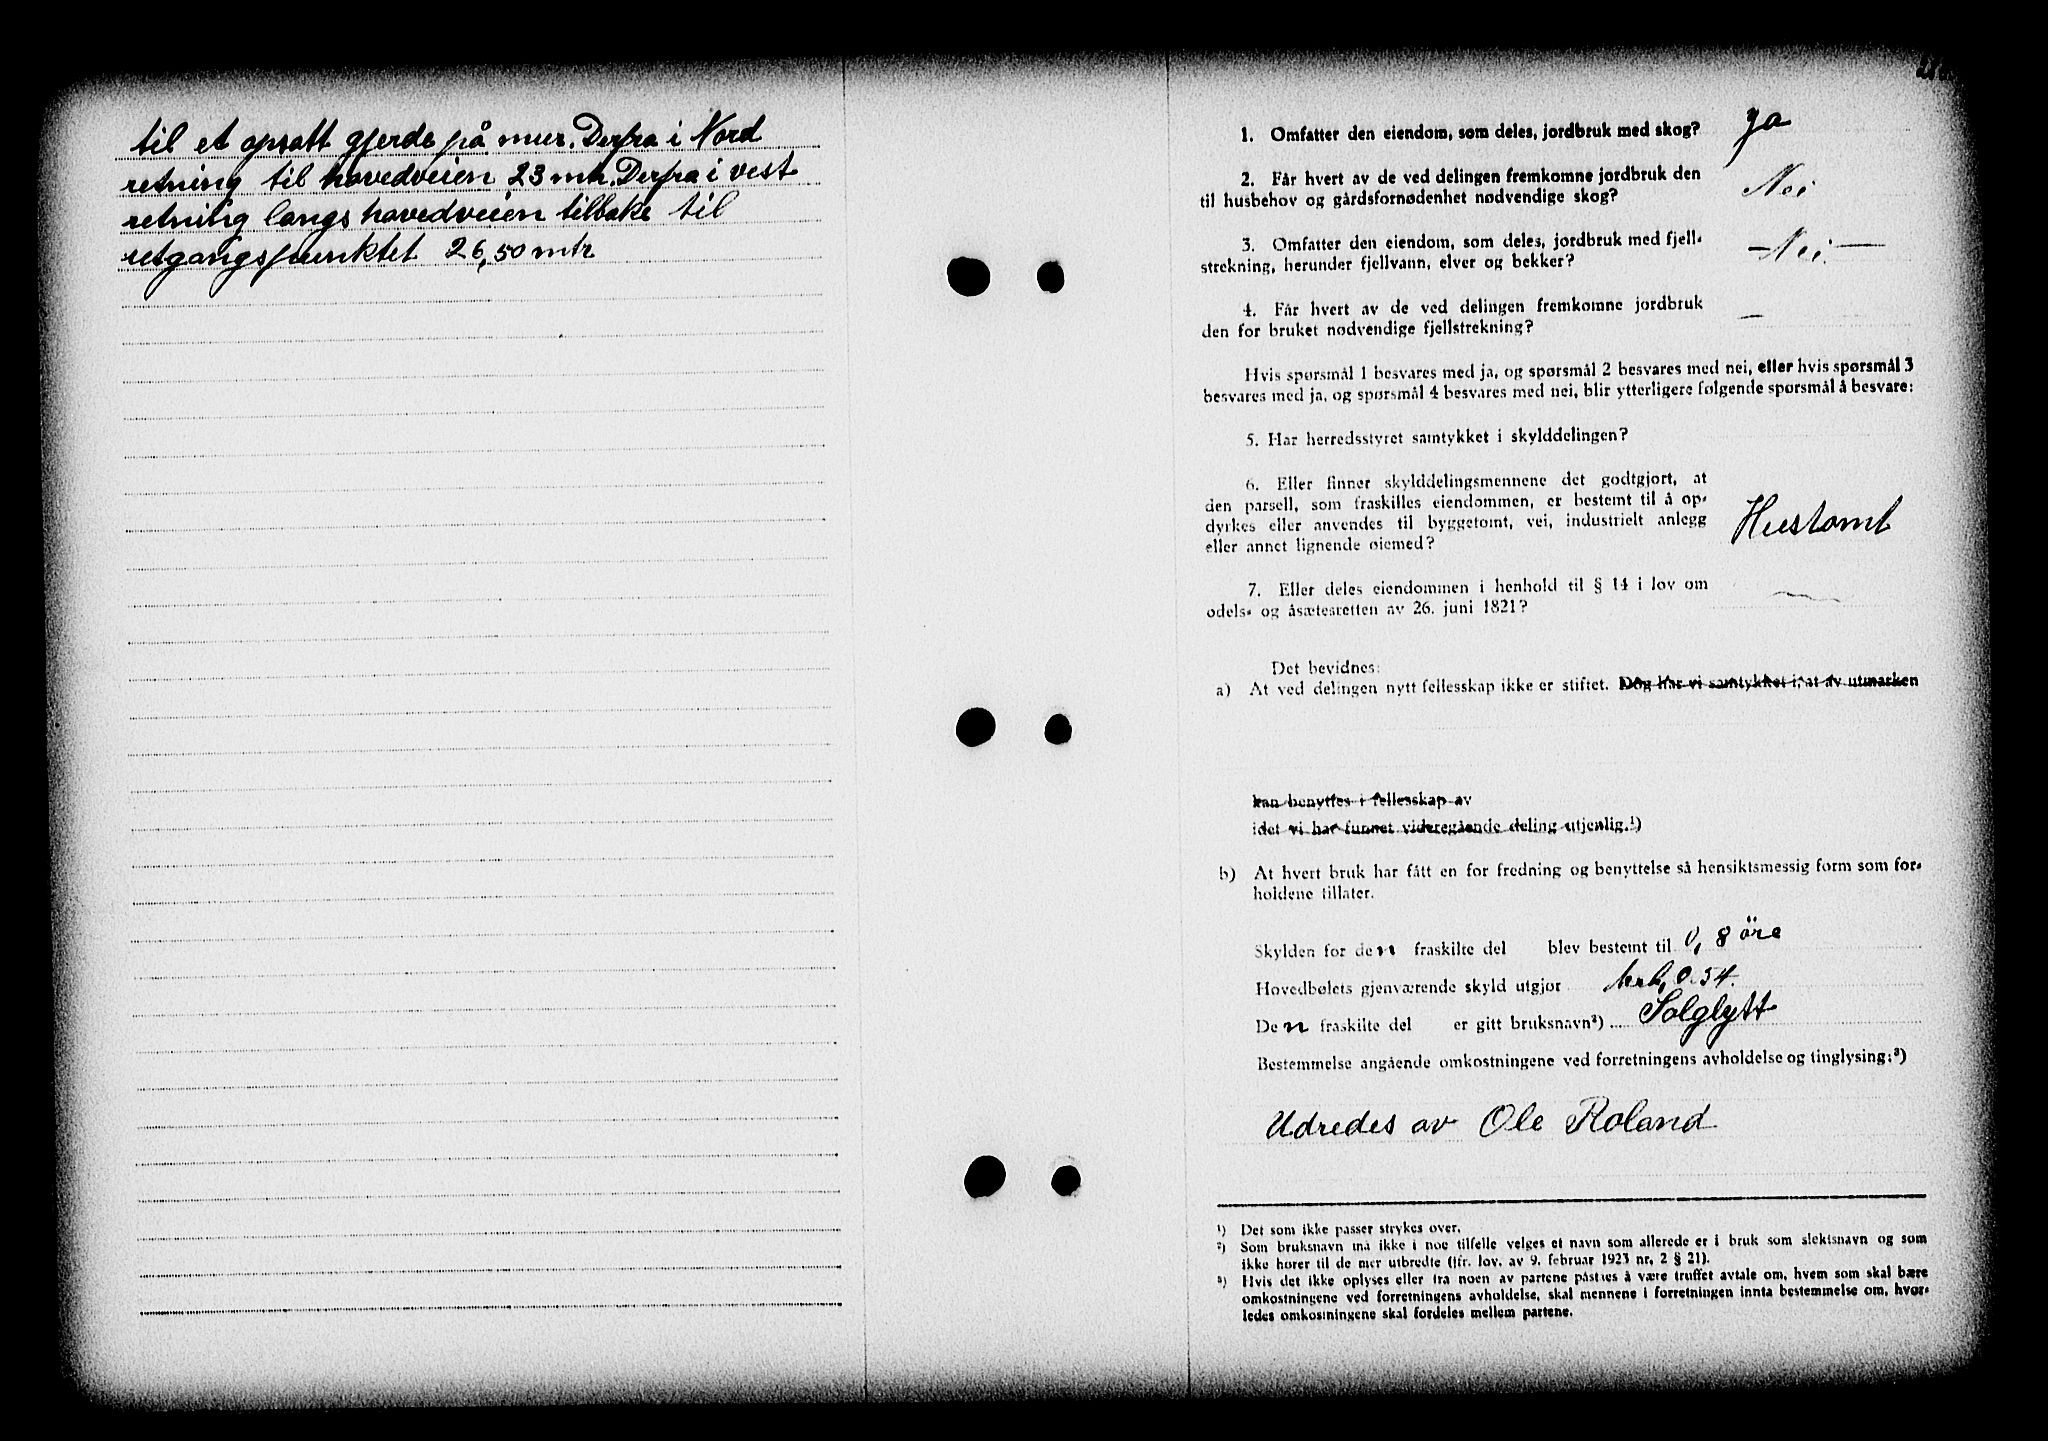 til et opsatt gjerde på mur. Derfra i Nord
retning til hovedveien 23 mtr. Derfra i vest
retning langs hovedveien tilbake til
utgangspunktet 26,50 mtr
1. Omfatter den eiendom, som deles, jordbruk med skog? Ja
2. Får hvert av de ved delingen fremkomne jordbruk den
til husbehov og gårdsfornødenhet nødvendige skog? Nei
3. Omfatter den eiendom, som deles, jordbruk med fjell-
strekning, herunder fjellvann, elver og bekker? — Nei. —
4. Får hvert av de ved delingen fremkomne jordbruk
den for bruket nødvendige fjellstrekning? —
Hvis spørsmål 1 besvares med ja, og spørsmål 2 besvares med nei, eller hvis spørsmål 3
besvares med ja, og spørsmål 4 besvares med nei, blir ytterligere følgende spørsmål å besvare:
5. Har herredsstyret samtykket i skylddelingen?
6. Eller finner skylddelingsmennene det godtgjort, at
den parsell, som fraskilles eiendommen, er bestemt til å op-
dyrkes eller anvendes til byggetomt, vei, industrielt anlegg
eller annet lignende øiemed? Hustomt
7. Eller deles eiendommen i henhold til § 14 i lov om
odels- og åsætesretten av 26. juni 1821?
Det bevidnes:
a) At ved delingen nytt fellesskap ikke er stiftet. Dog har vi samtykket i, at av utmarken
kan benyttes i fellesskap av
idet vi har funnet videregående deling utjenlig.¹)
b) At hvert bruk har fått en for fredning og benyttelse så hensiktsmessig form som for-
holdene tillater.
Skylden for den fraskilte del blev bestemt til 0,8 öre
Hovedbølets gjenværende skyld utgjør mrk, 0.54.
Den fraskilte del er gitt bruksnavn²) Solglytt
Bestemmelse angående omkostningene ved forretningens avholdelse og tinglysing:³)
Udredes av Ole Roland
¹) Det som ikke passer strykes over.
²) Som bruksnavn må ikke i noe tilfelle velges et navn som allerede er i bruk som slektsnavn og som
ikke hører til de mer utbredte (jfr. lov. av 9. februar 1923 nr. 2 § 21).
³) Hvis det ikke oplyses eller fra noen av partene påstås å være truffet avtale om, hvem som skal bære
omkostningene ved forretningens avholdelse, skal mennene i forretningen innta bestemmelse om, hvor-
ledes omkostningene skal fordeles mellem partene.